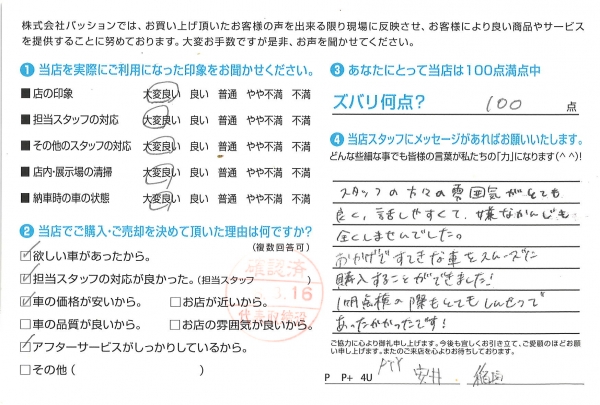 株式会社パッションでは、お買い上げ頂いたお客様の声を出来る限り現場に反映させ、お客様により良い商品やサービス
を提供することに努めております。大変お手数ですが是非、お声を聞かせてください。
❶ 当店を実際にご利用になった印象をお聞かせください。
■ 店の印象 大変良い 良い 普通 やや不満 不満
■ 担当スタッフの対応 大変良い 良い 普通 やや不満 不満
■ その他のスタッフの対応 大変良い 良い 普通 やや不満 不満
■ 店内・展示場の清掃 大変良い 良い 普通 やや不満 不満
■ 納車時の車の状態 大変良い 良い 普通 やや不満 不満
❷ 当店でご購入・ご売却を決めて頂いた理由は何ですか?
(複数回答可)
☑欲しい車があったから。
☑担当スタッフの対応が良かった。(担当スタッフ )
☑車の価格が安いから。 □お店が近いから。
□車の品質が良いから。 □お店の雰囲気が良いから。
☑アフターサービスがしっかりしているから。
□その他( )
確認済
3.16
代表取締役
❸ あなたにとって当店は100点満点中
ズバリ何点? 100 点
❹ 当店スタッフにメッセージがあればお願いいたします。
どんな些細な事でも皆様の言葉が私たちの「力」になります(^^)!
スタッフの方々の雰囲気がとても
良く、話しやすくて、嫌なかんじも
全くしませんでした。
おかげですてきな車をスムーズに
購入することができました!
1ヶ月点検の際もとてもしんせつで
あったかかったです!
ご協力に心より御礼申し上げます。今後も宜しくお引き立て、ご愛顧のほどお願
い申し上げます。またのご来店を心よりお待ちしております。
P P+ 4U 安井